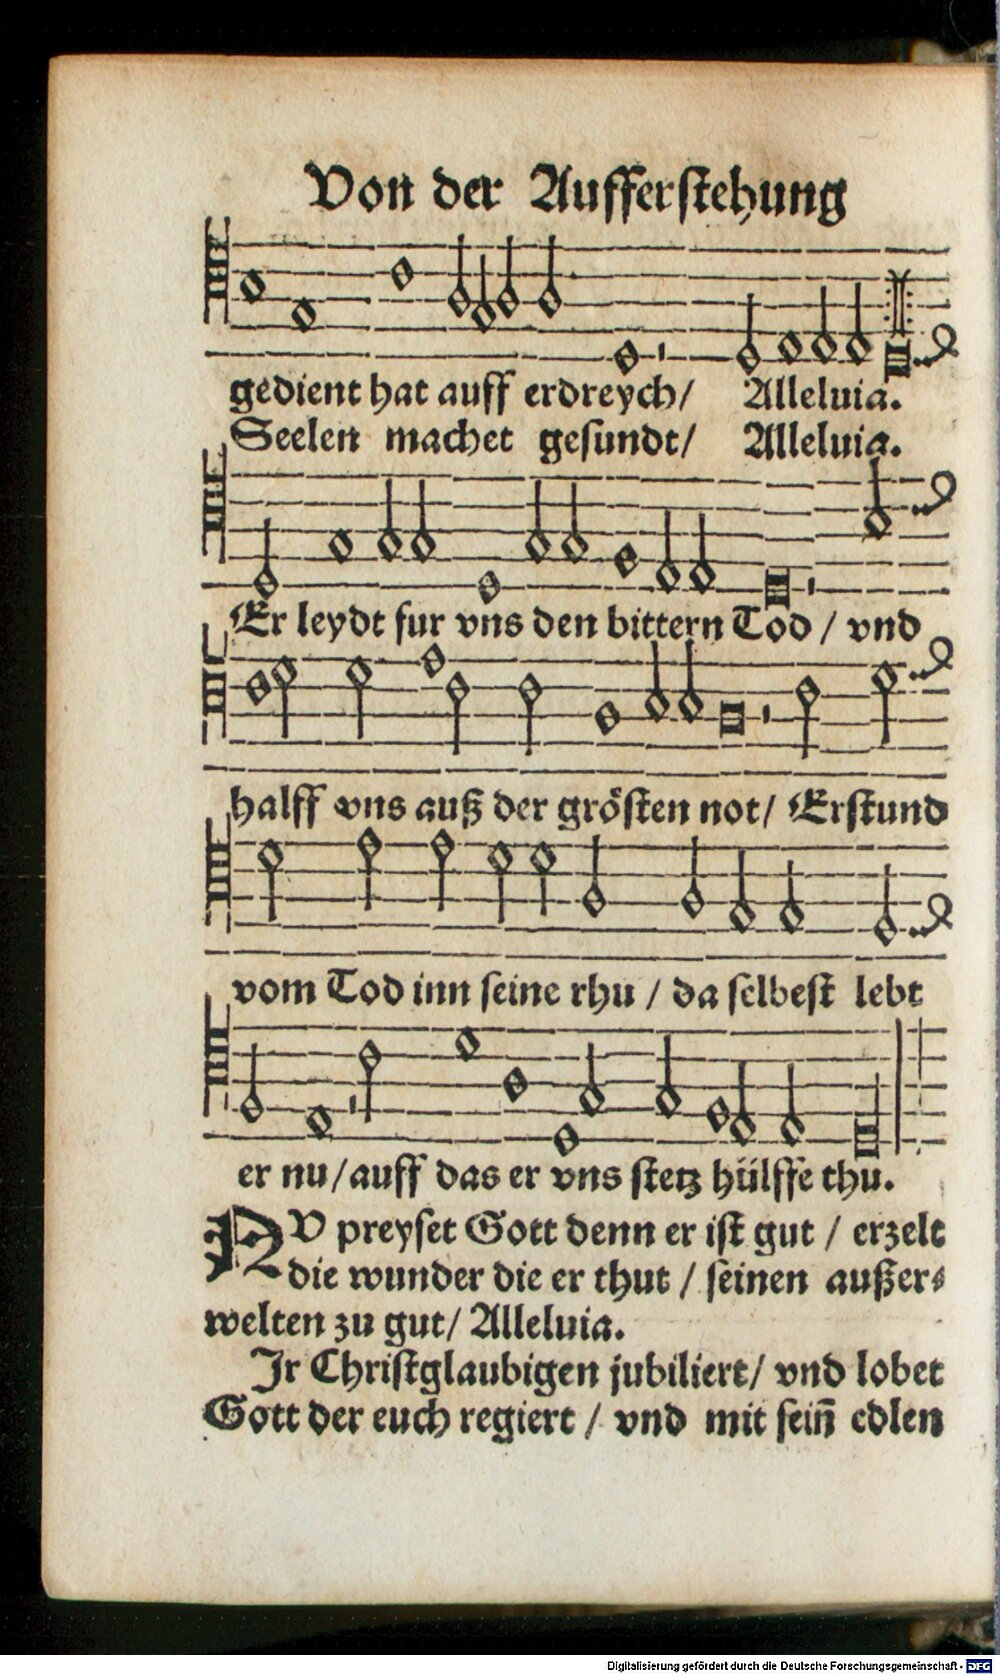 Von der Aufferſtehung
gedient hat auff erdreych/ Alleluia.
Seelen machet geſundt/ Alleluia.
Er leydt fur vns den bittern Tod / vnd
halff vns auß der gröſten not/ Erſtund
vom Tod inn ſeine rhu / da ſelbeſt lebt
er nu/auff das er vns ſtetz hülffe thu.
NV preyſet Gott denn er iſt gut / erzelt
die wunder die er thut / ſeinen außer⸗
welten zu gut/ Alleluia.
Jr Chriſtglaubigen jubiliert/ vnd lobet
Gott der euch regiert / vnd mit ſein̄ edlen
Digitalisierung gefördert durch die Deutsche Forschungsgemeinschaft - DFG